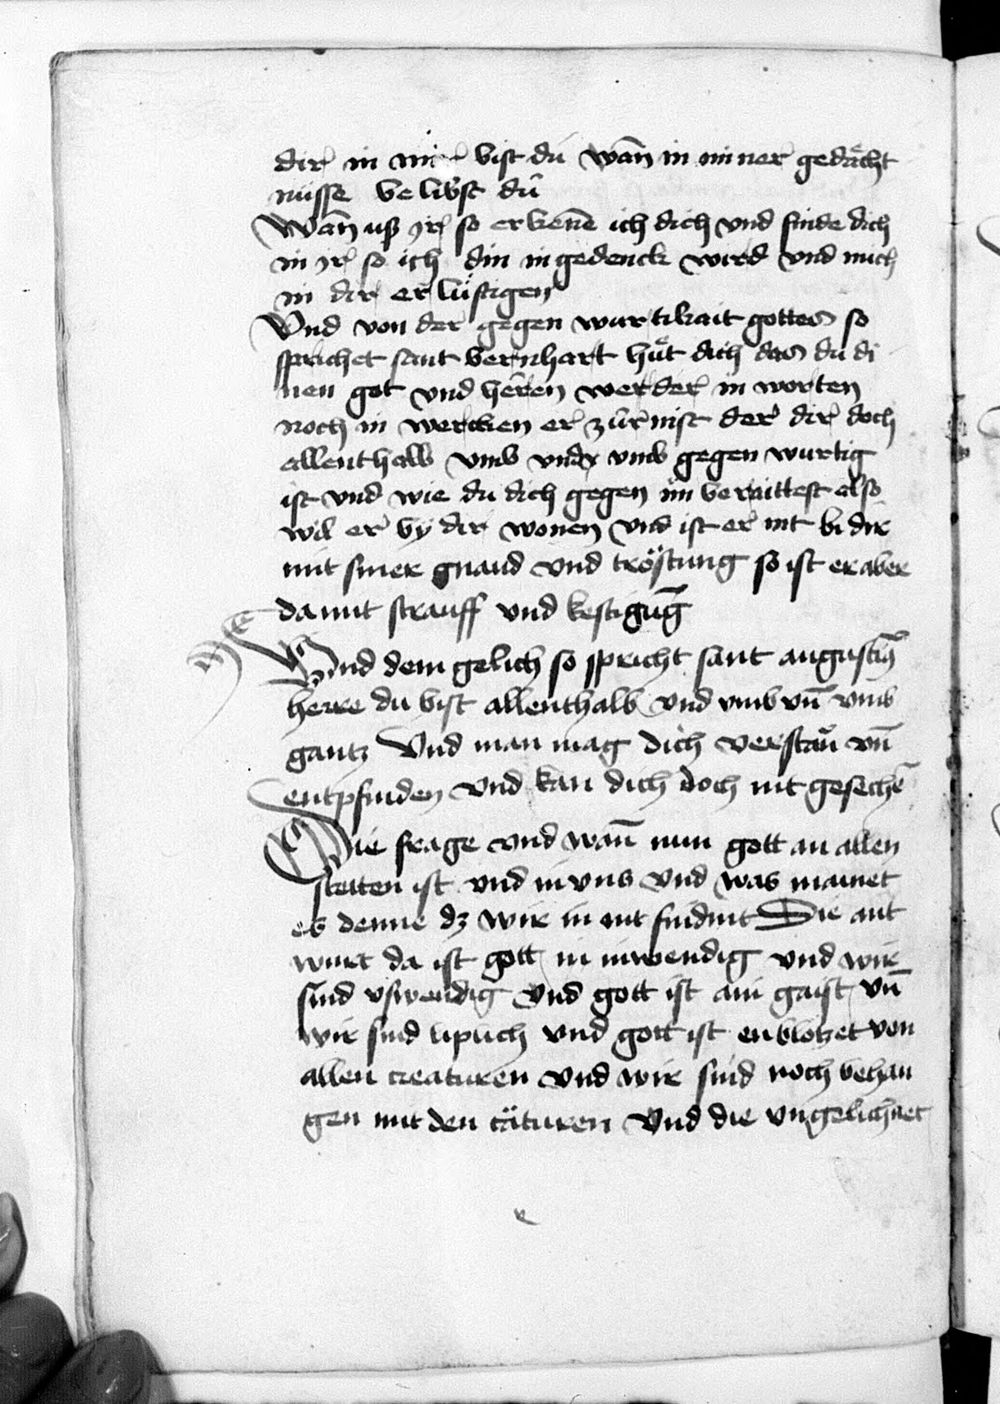 dir in mir bist du wan̄ in miner gedächt
nüsse belibst dů
Wan̄ uß ir so erkenē ich dich vnd finde dich
in ir so ich din ingedenck wird vnd mich
in dir erlüstigen
Vnd von der gegen wurtikait gottes so
sprichet sant bernhart hůt dich das du di
nen got vnd herren werder in worten
noch in wercken erzürnist der dir doch
allenthalb vmb vnd vmb gegen wurtig
ist vnd wie du dich gegen im beraittest also
wil er by dir wonen vnd ist er nit bi dir
mit siner gnaud vnd tröstung so ist er aber
da mit strauff vnd kestigūg
Vnd dem gelich so spricht sant augustin̄
herre du bist allenthalb vnd vmb vn̄ vmb
gantz Vnd man mag dich verstān vn̄
entpfinden vnd kan dich doch nit gesechē
Die frage vnd wan̄ nun gott an allen
stetten ist vnd in vns vnd was mainet
es denne dz wir in nit findint Die ant
wurt da ist gott in inwendig vnd wir
sind vswendig Vnd gott ist ain gaist vn̄
wir sind liplich vnd gott ist enblötzet von
allen creaturen vnd wir sind noch behan
gen mit den cāturen Vnd die vngelichnet